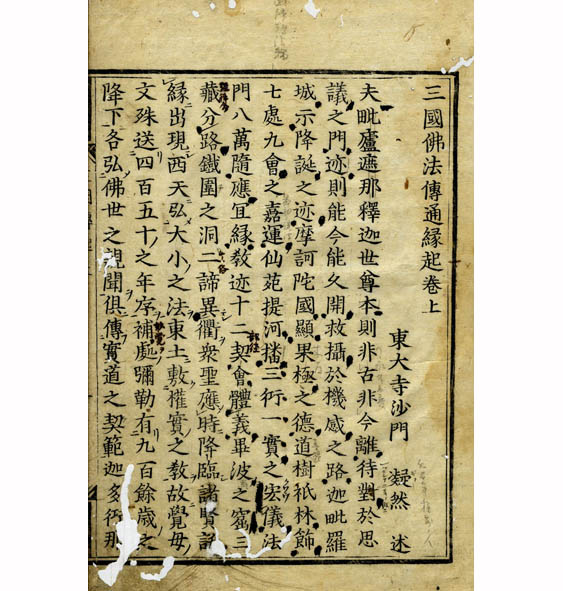 三國佛法傳通縁起卷上
東大寺沙門 凝然 述
夫毗盧遮那釋迦世尊本則非古非今離待對於思
議之門迹則能今能久開救攝於機感之路迦毗羅
城示降誕之迹摩訶陀國顯果極之德道樹祇林飾
七處九會之嘉運仙苑提河播三行一實之宏儀法
門八萬隨應冝縁敎迹十二契會體義畢波之窟三
藏分路鐵圍之洞二諦異衢衆聖應時降臨諸賢
縁出現西天弘大小之法東土敷權實之敎故覺母
文殊送四百五十之年序補處彌勒有九百餘歳之
降下各弘佛世之視聞俱傳實道之契範迦多衍那